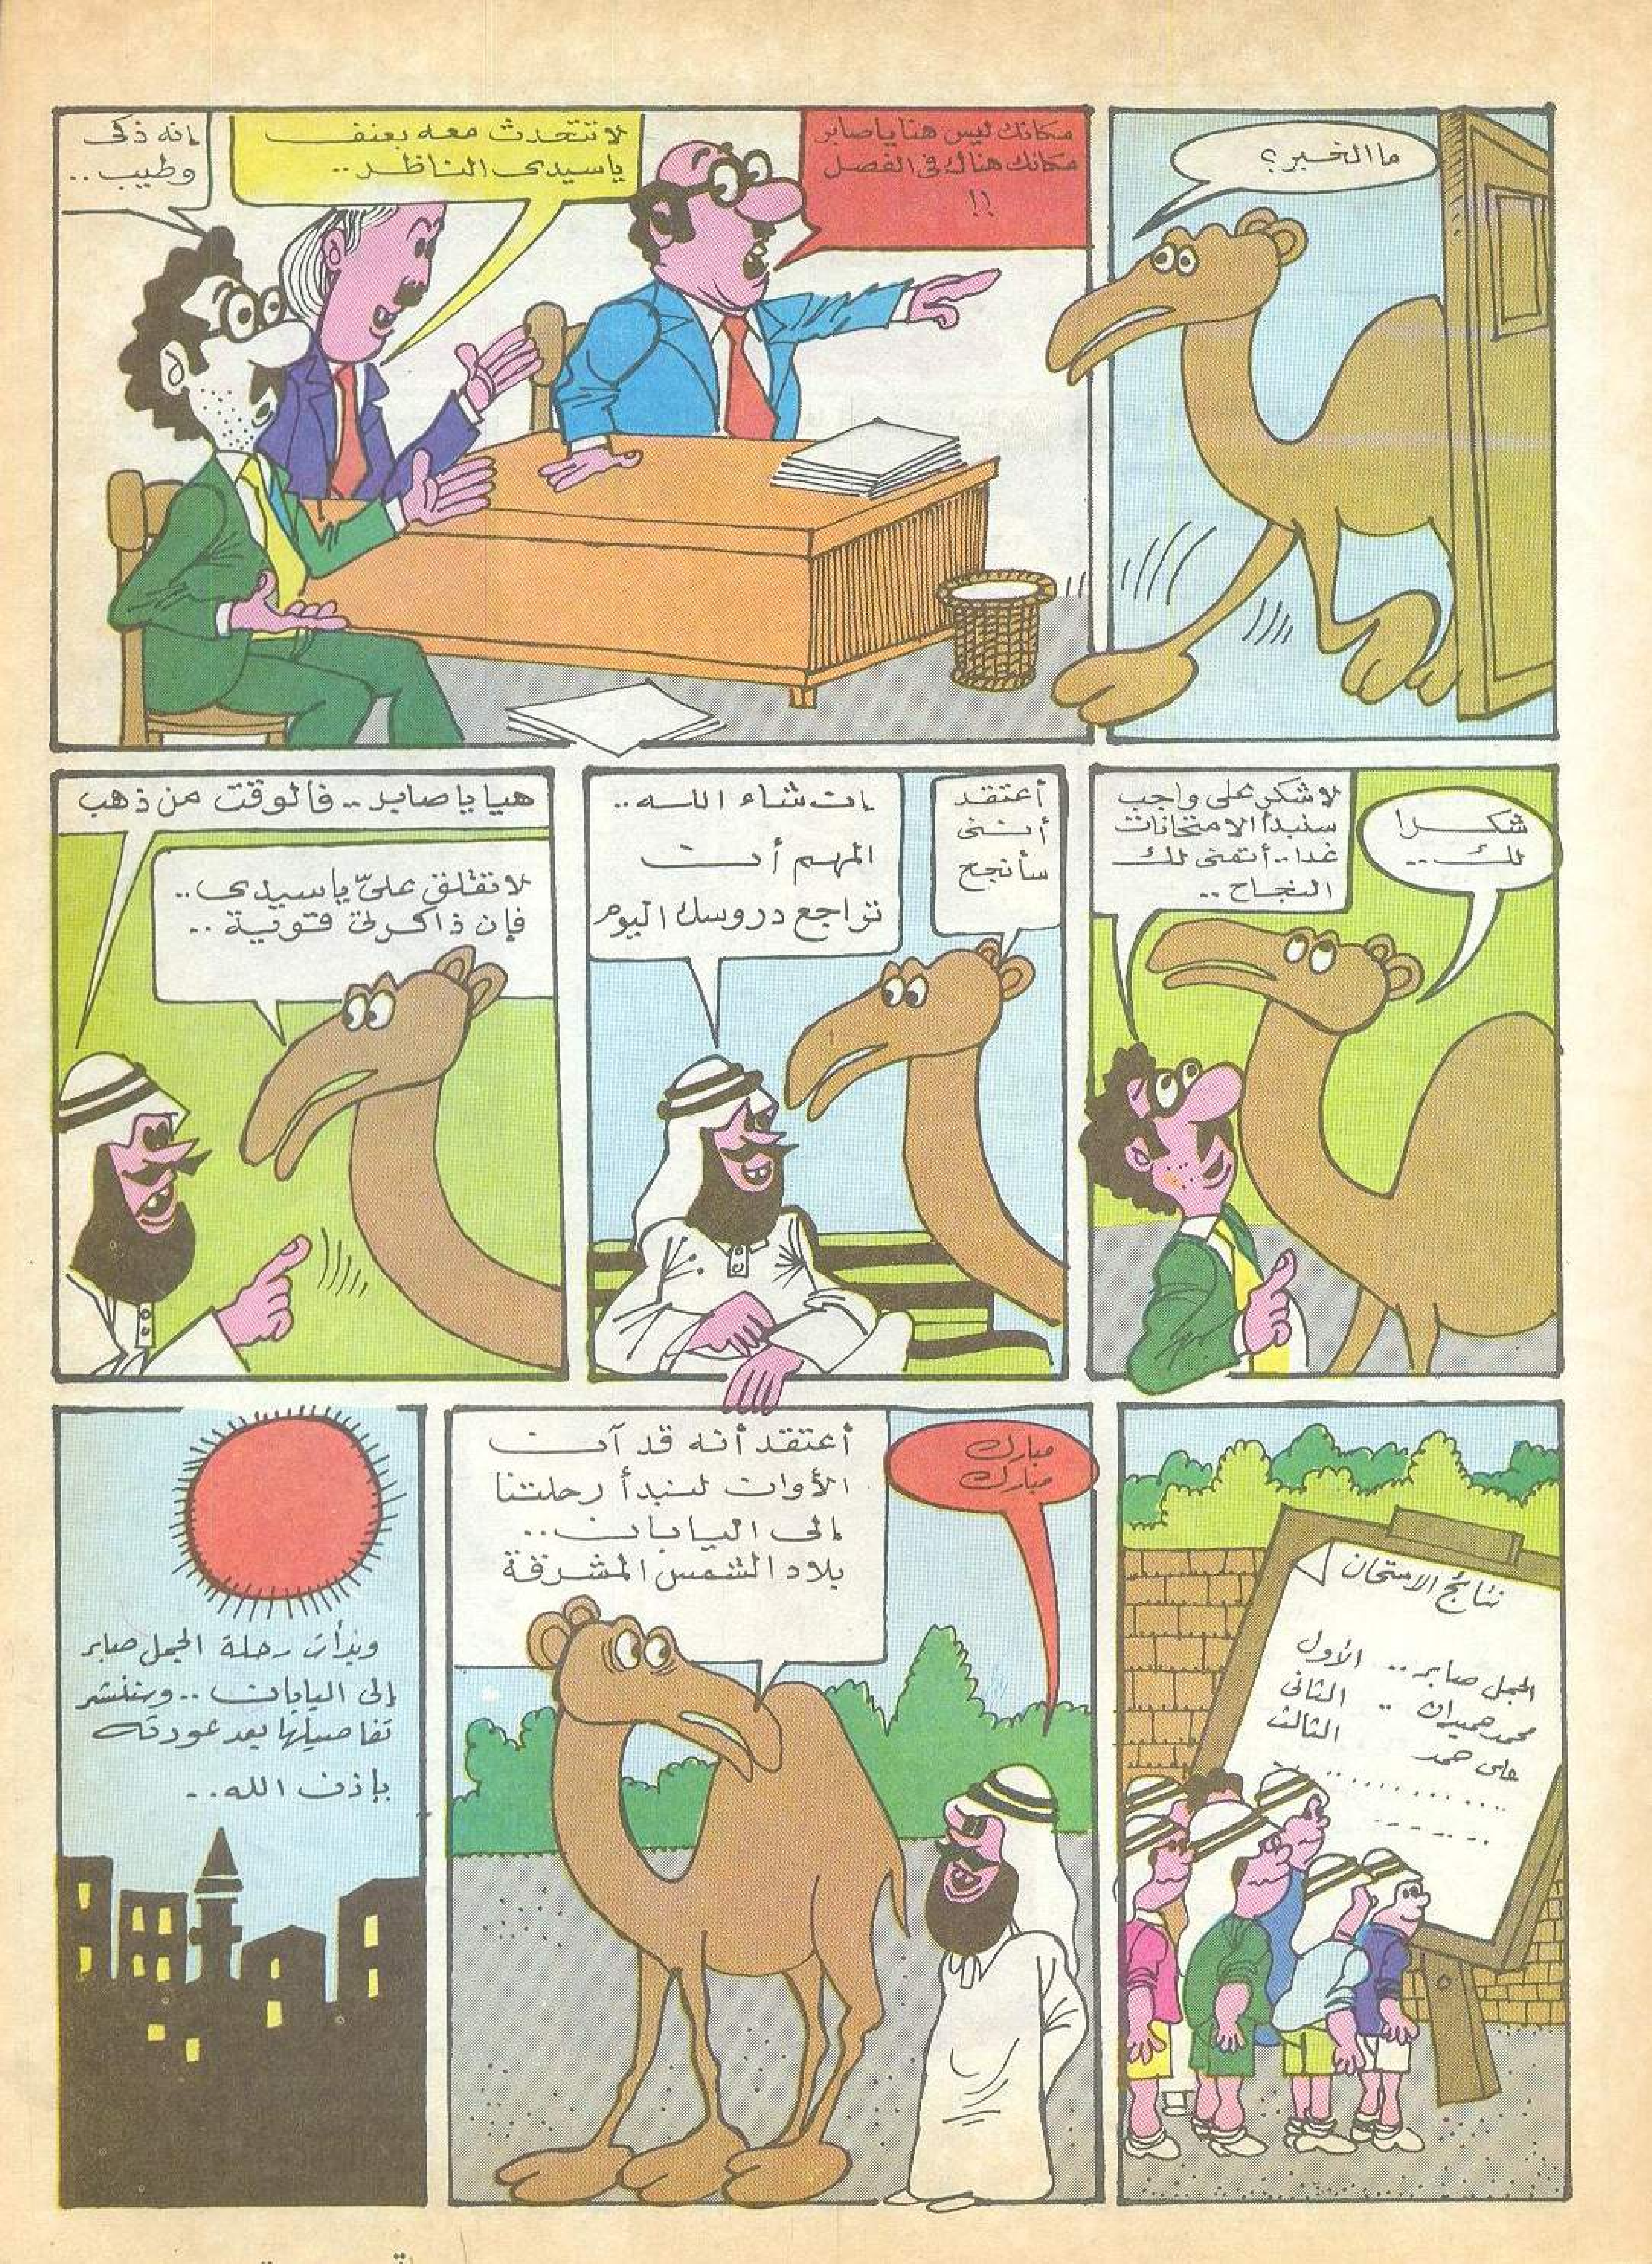 ما الخبر؟
مكانك ليس هنا يا صابر
مكانك هناك في الفصل
!!
لا تتحدث معه بعنف
يا سيدى الناظر ..
إنه ذكى
وطيب ..
شكرا
لك ..
لا شكر على واجب
سنبدأ الامتحانات
غدا .. أتمنى لك
النجاح ..
أعتقد
أننى
سأنجح
إن شاء الله ..
المهم أن
تراجع دروسك اليوم
هيا يا صابر .. فالوقت من ذهب
لا تقلق علىّ يا سيدى ..
فإن ذاكرتى قوية ..
نتائج الامتحان
الجمل صابر .. الأول
محمد حميدان .. الثانى
على حمد الثالث
مبارك
مبارك
أعتقد أنه قد آن
الأوان لنبدأ رحلتنا
إلى اليابان ..
بلاد الشمس المشرقة
وبدأت رحلة الجمل صابر
إلى اليابان .. وسننشر
تفاصيلها بعد عودته
بإذن الله ..